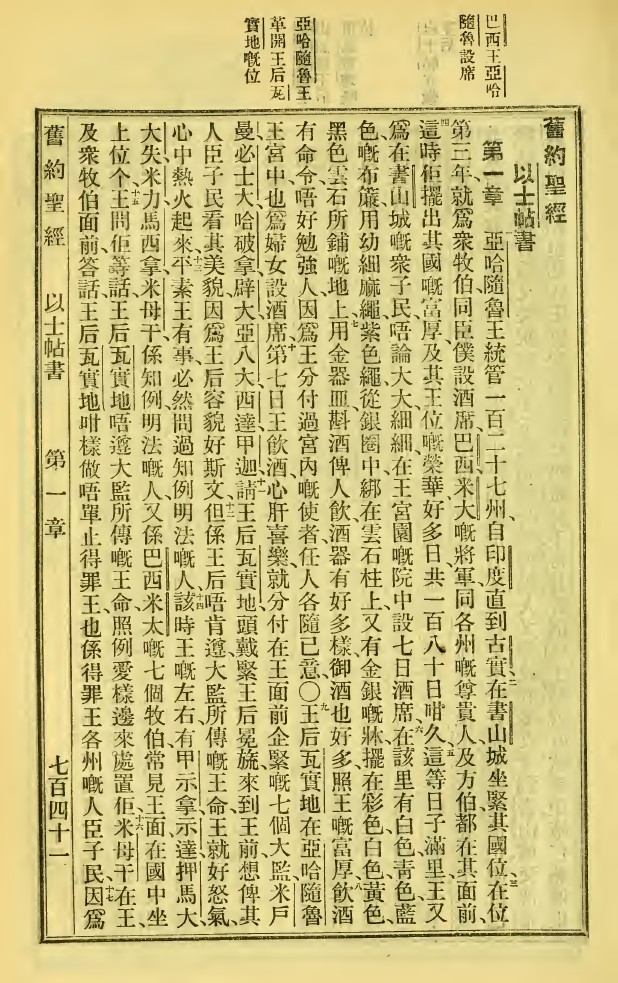 巴西王亞哈
隨魯設席
亞哈隨魯王
革開王后瓦
實地嘅位
舊約聖經
以士帖書
第一章 亞哈隨魯王統管一百二十七州、自印度直到古實、二在書山城坐緊其國位、三在位
第三年、就爲衆牧伯同臣僕設酒席、巴西米大嘅將軍同各州嘅尊貴人、及方伯都在其面前、
四這時佢擺出其國嘅富厚、及其王位嘅榮華好多日、共一百八十日咁久、五這等日子滿里、王又
爲在書山城嘅衆子民、唔論大大細細、在王宮園嘅院中設七日酒席、六在該里有白色、青色、藍
色嘅布簾、用幼細麻繩、紫色繩、從銀圈中綁在雲石柱上、又有金銀嘅牀、擺在彩色、白色、黃色、
黑色雲石所鋪嘅地上、七用金器皿斟酒俾人飲、酒器有好多樣、御酒也好多、照王嘅富厚、八飲酒
有命令唔好勉強人、因爲王分付過宮內嘅使者、任人各隨己意、〇九王后瓦實地在亞哈隨魯
王宮中、也爲婦女設酒席、十第七日王飲酒心肝喜樂、就分付在王面前企緊嘅七個大監、米戶
曼、必士大、哈破拿、辟大、亞八大、西達、甲迦、十一請王后瓦實地頭戴緊王后冕旒、來到王前、想俾其
人臣子民看其美貌、因爲王后容貌好斯文、十二但係王后唔肯遵大監所傳嘅王命、王就好怒氣、
心中熱火起來、十三平素王有事、必然問過知例明法嘅人、十四該時王嘅左右、有甲示拿、示達、押馬大、
大失、米力、馬西拿、米母干、係知例明法嘅人、又係巴西米太嘅七個牧伯、常見王面、在國中坐
上位个、十五王問佢等話、王后瓦實地唔遵大監所傳嘅王命、照例愛樣邊來處置佢、十六米母干在王
及衆牧伯面前答話、王后瓦實地咁樣做、唔單止得罪王、也係得罪王各州嘅人臣子民、十七因爲
舊約聖經 以士帖書 第一章 七百四十一